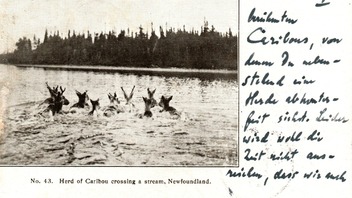 I
berühmten
Caribous, von
denen Du neben-
stehend eine
Herde abkonter-
feit siehst. Leider
wird wohl die
Zeit nicht aus-
reichen, dass wir auch
No. 43. Herd of Caribou crossing a stream, Newfoundland.